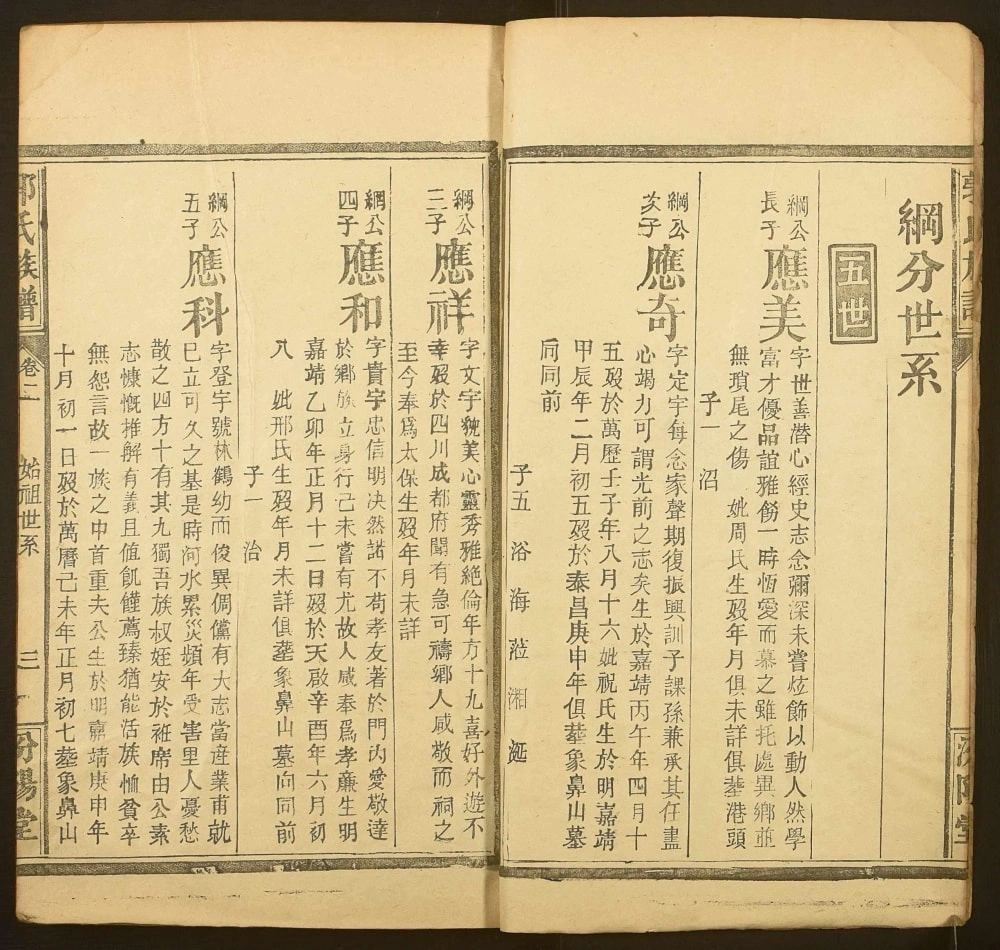 綱分世系
五世
綱公
長子
應美
字世善潛心經史志念彌深未嘗炫飾以動人然學
富才優品誼雅飭一時恆愛而慕之雖托處異鄉並
無瑣尾之傷 妣周氏生歿年月俱未詳俱塟港頭
子一 沼
綱公
次子
應奇
字定宇每念家聲期復振興訓子課孫兼承其任盡
心竭力可謂光前之志矣生於嘉靖丙午年四月十
五歿於萬歷壬子年八月十六妣祝氏生於明嘉靖
甲辰年二月初五歿於泰昌庚申年俱塟象鼻山墓
向同前
子五 浴 海 涖 湘 涎
綱公
三子
應祥
字文宇貌美心靈秀雅絶倫年方十九喜好外遊不
幸歿於四川成都府聞有急可禱鄉人咸敬而祠之
至今奉爲太保生歿年月未詳
綱公
四子
應和
字貴宇忠信明决然諾不苟孝友著於門内愛敬達
於鄉族立身行己未嘗有尤故人咸奉爲孝廉生明
嘉靖乙卯年正月十二日歿於天啟辛酉年六月初
八 妣邢氏生歿年月未詳俱塟象鼻山墓向同前
子一 治
綱公
五子
應科
字登宇號林鶴幼而俊異倜儻有大志當産業甫就
巳立可久之基是時河水累災頻年受害里人憂愁
散之四方十有其九獨吾族叔姪安於袵席由公素
志慷慨推解有義且值飢饉薦臻猶能活族恤貧卒
無怨言故一族之中首重夫公生於明嘉靖庚申年
十月初一日歿於萬曆己未年正月初七塟象鼻山
郭氏族譜
卷二
始祖世系
三
汾陽堂